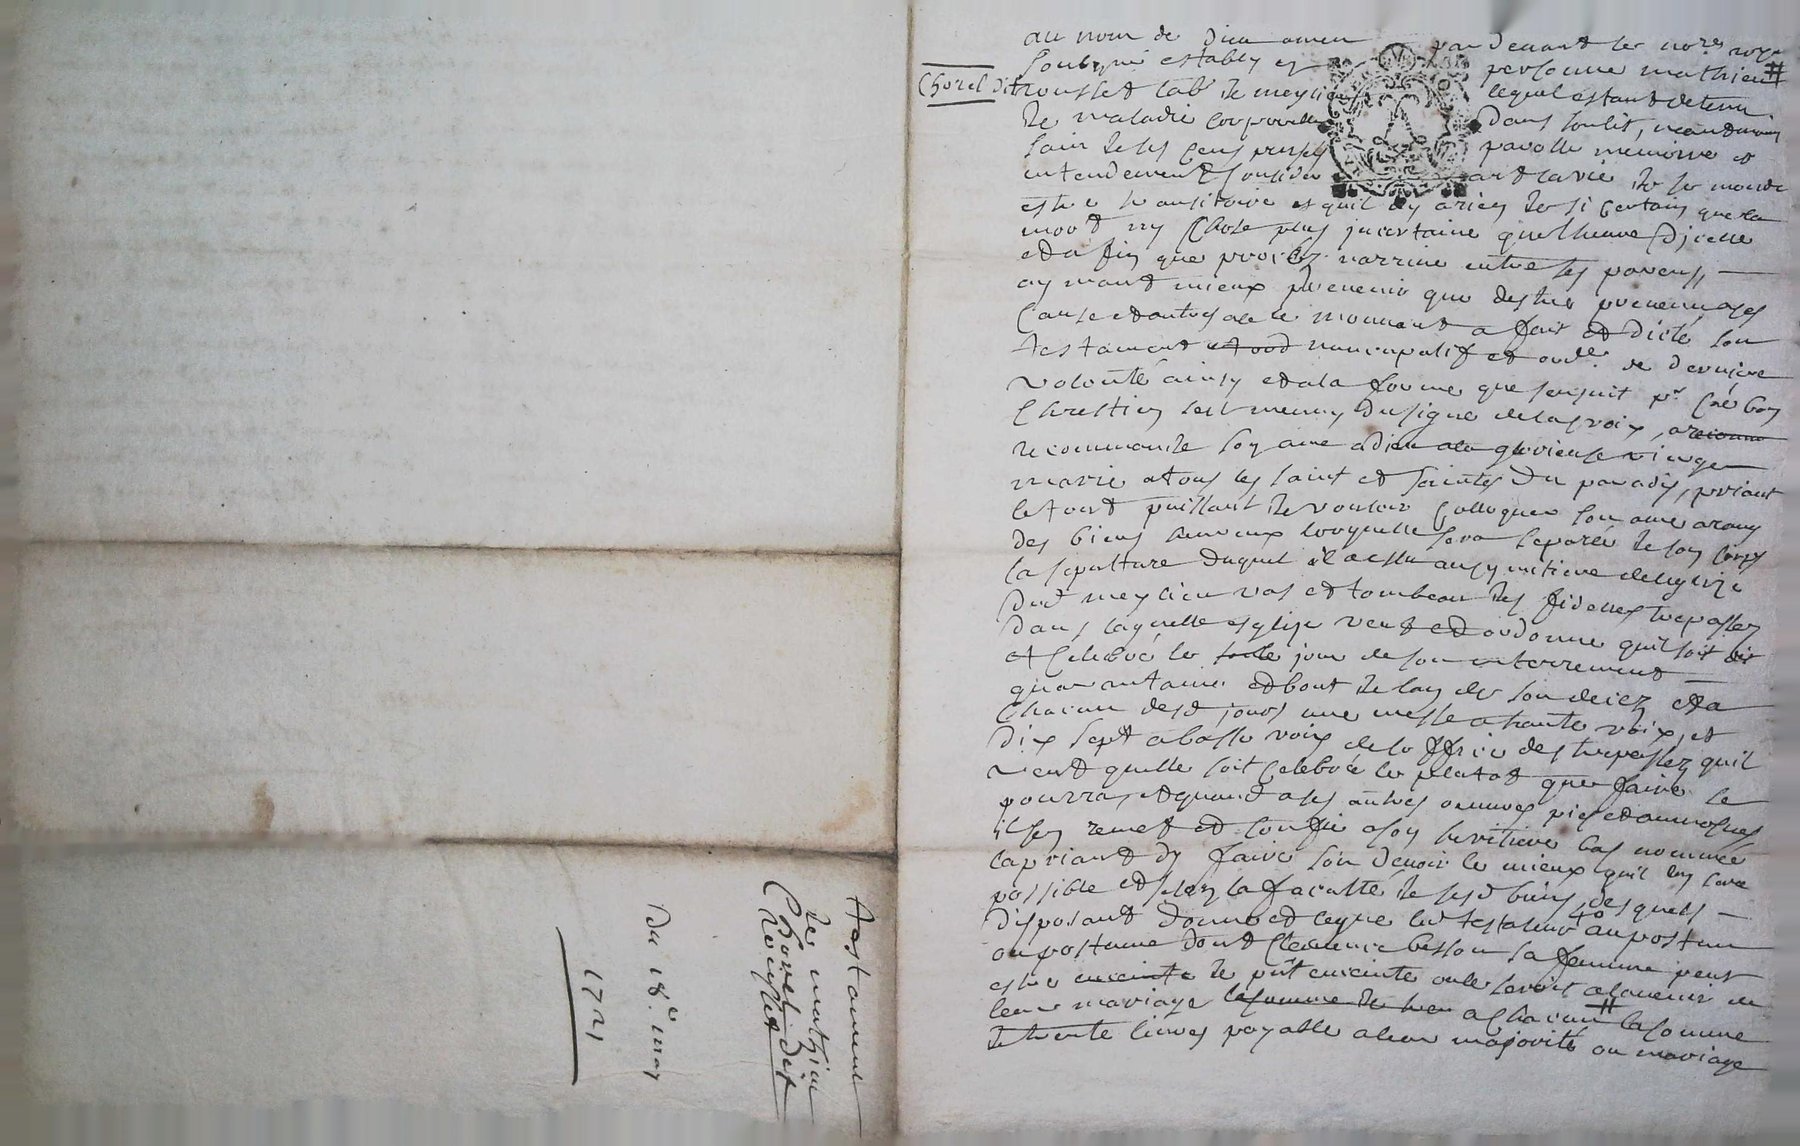 au nom de Dieu amen par devant les no.res roy.x
soubsigné estably en personne mathieu #
Chorel dit rousset lab.r de meylieu lequel estant detenu
de maladie corporelle dans son lit, neantmoins
sain de ses sens pensés parolle memoire et
entendement considerant la vie de ce monde
estre transitoire et quil ny a rien de si certain que la
mort ny chose plus incertaine que lheure dicelle
et afin que procez narrive entre ses parens,
aymant mieux prevenir que destre prevenu a ces
cause et autres a ce le mouvant a fait et dicté son
testament nuncupatif et ord.ce de derniere
volonté ainsy et a la forme que sensuit p.r co.e bon
Chrestien sest muny du signe de la croix, a
recommande son ame a dieu a la glorieuse vierge
marie a tous les saint et saintes du paradis, priant
le tout puissant de vouloir colloquer son ame a rang
des biens heureux lorsquelle sera separée de son corps
la sepulture duquel il a eslu au cymetiere de leglize
dud meylieu vas et tombeau des fidelles trepassez
dans laquelle esglize veut et ordonne quil soit dit
et celebré le jour de son enterrement
quarantaine et bout de lan de son decez et a
chacun desd jours une messe a haute voix, et
dix sept a basse voix de loffice des trepassez quil
veut quelle soit celebré le plutot que faire se
pourra, et quand a ses autres oeuvres pies et aumosnes
il sen remet et confie a son heritiere bas nommée
la priant dy faire son devoir le mieux quil luy sera
possible et selon la faculté de sesd biens, desquels
disposant donne et legue led testateur au postum
ou postume dont Clemence besson sa femme peut
estre de p.nt enceinte ou le seroit a lavenir de
leur mariage a chacun # la somme
de trente livres payable a leur majorité ou mariage
Testament
de mathieu
Chorel dit
rousset
Du 18.e may
1721